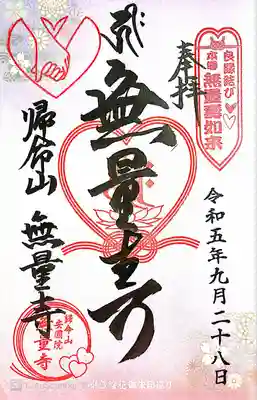 奉拝
良縁結び
本尊
無量寿如来
無量寿
帰命山
無量寺
令和五年九月二十八日
帰命山